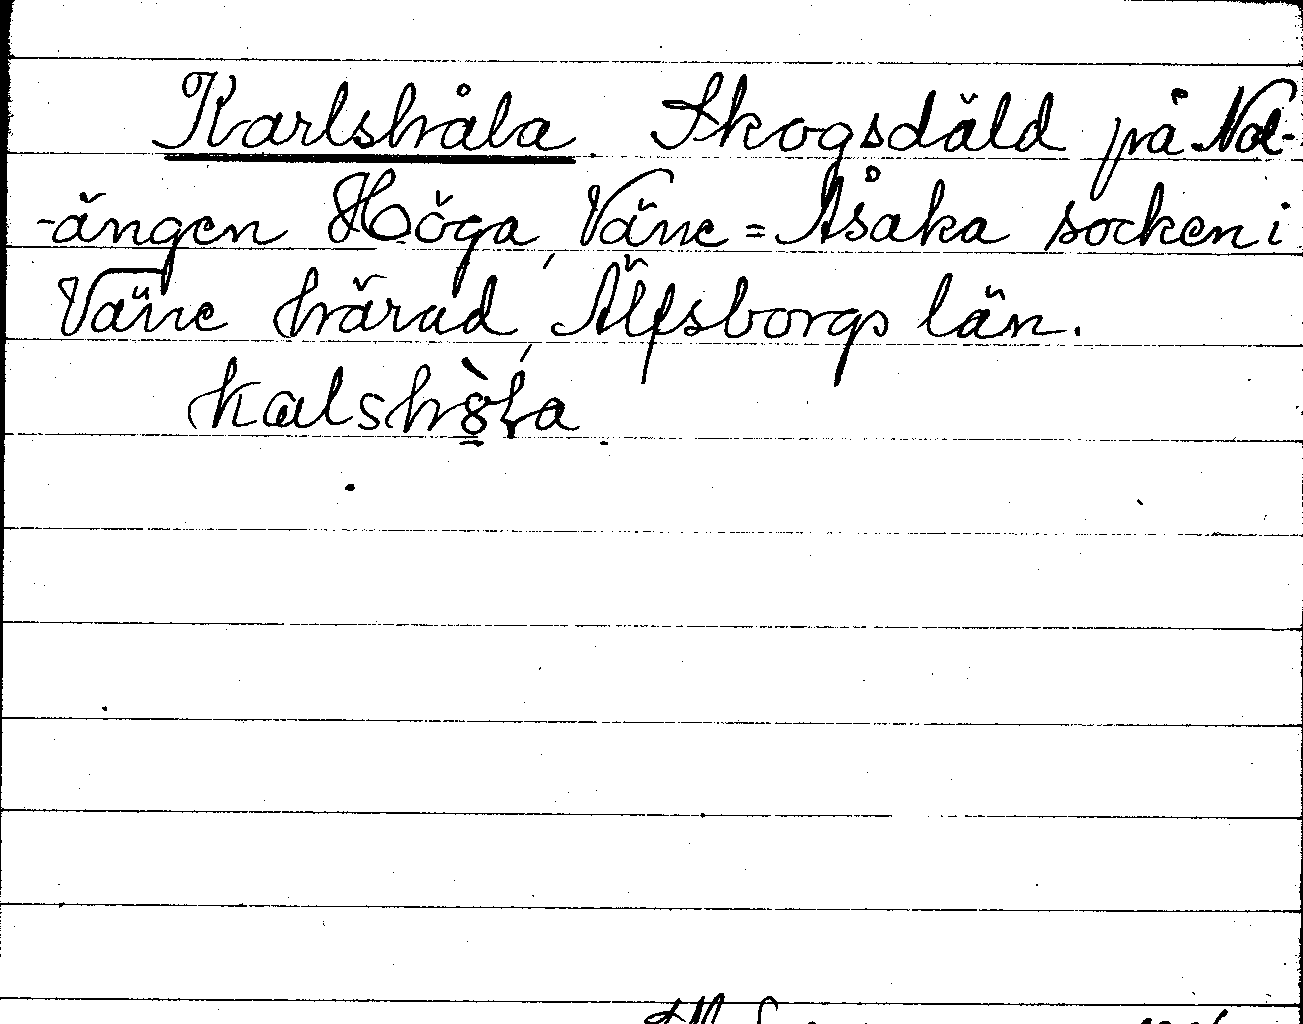 Karlshåla. Skogsdäld på Nol-
-ängen Höga, Väne=Åsaka socken i
Väne härad, Älfsborgs län.